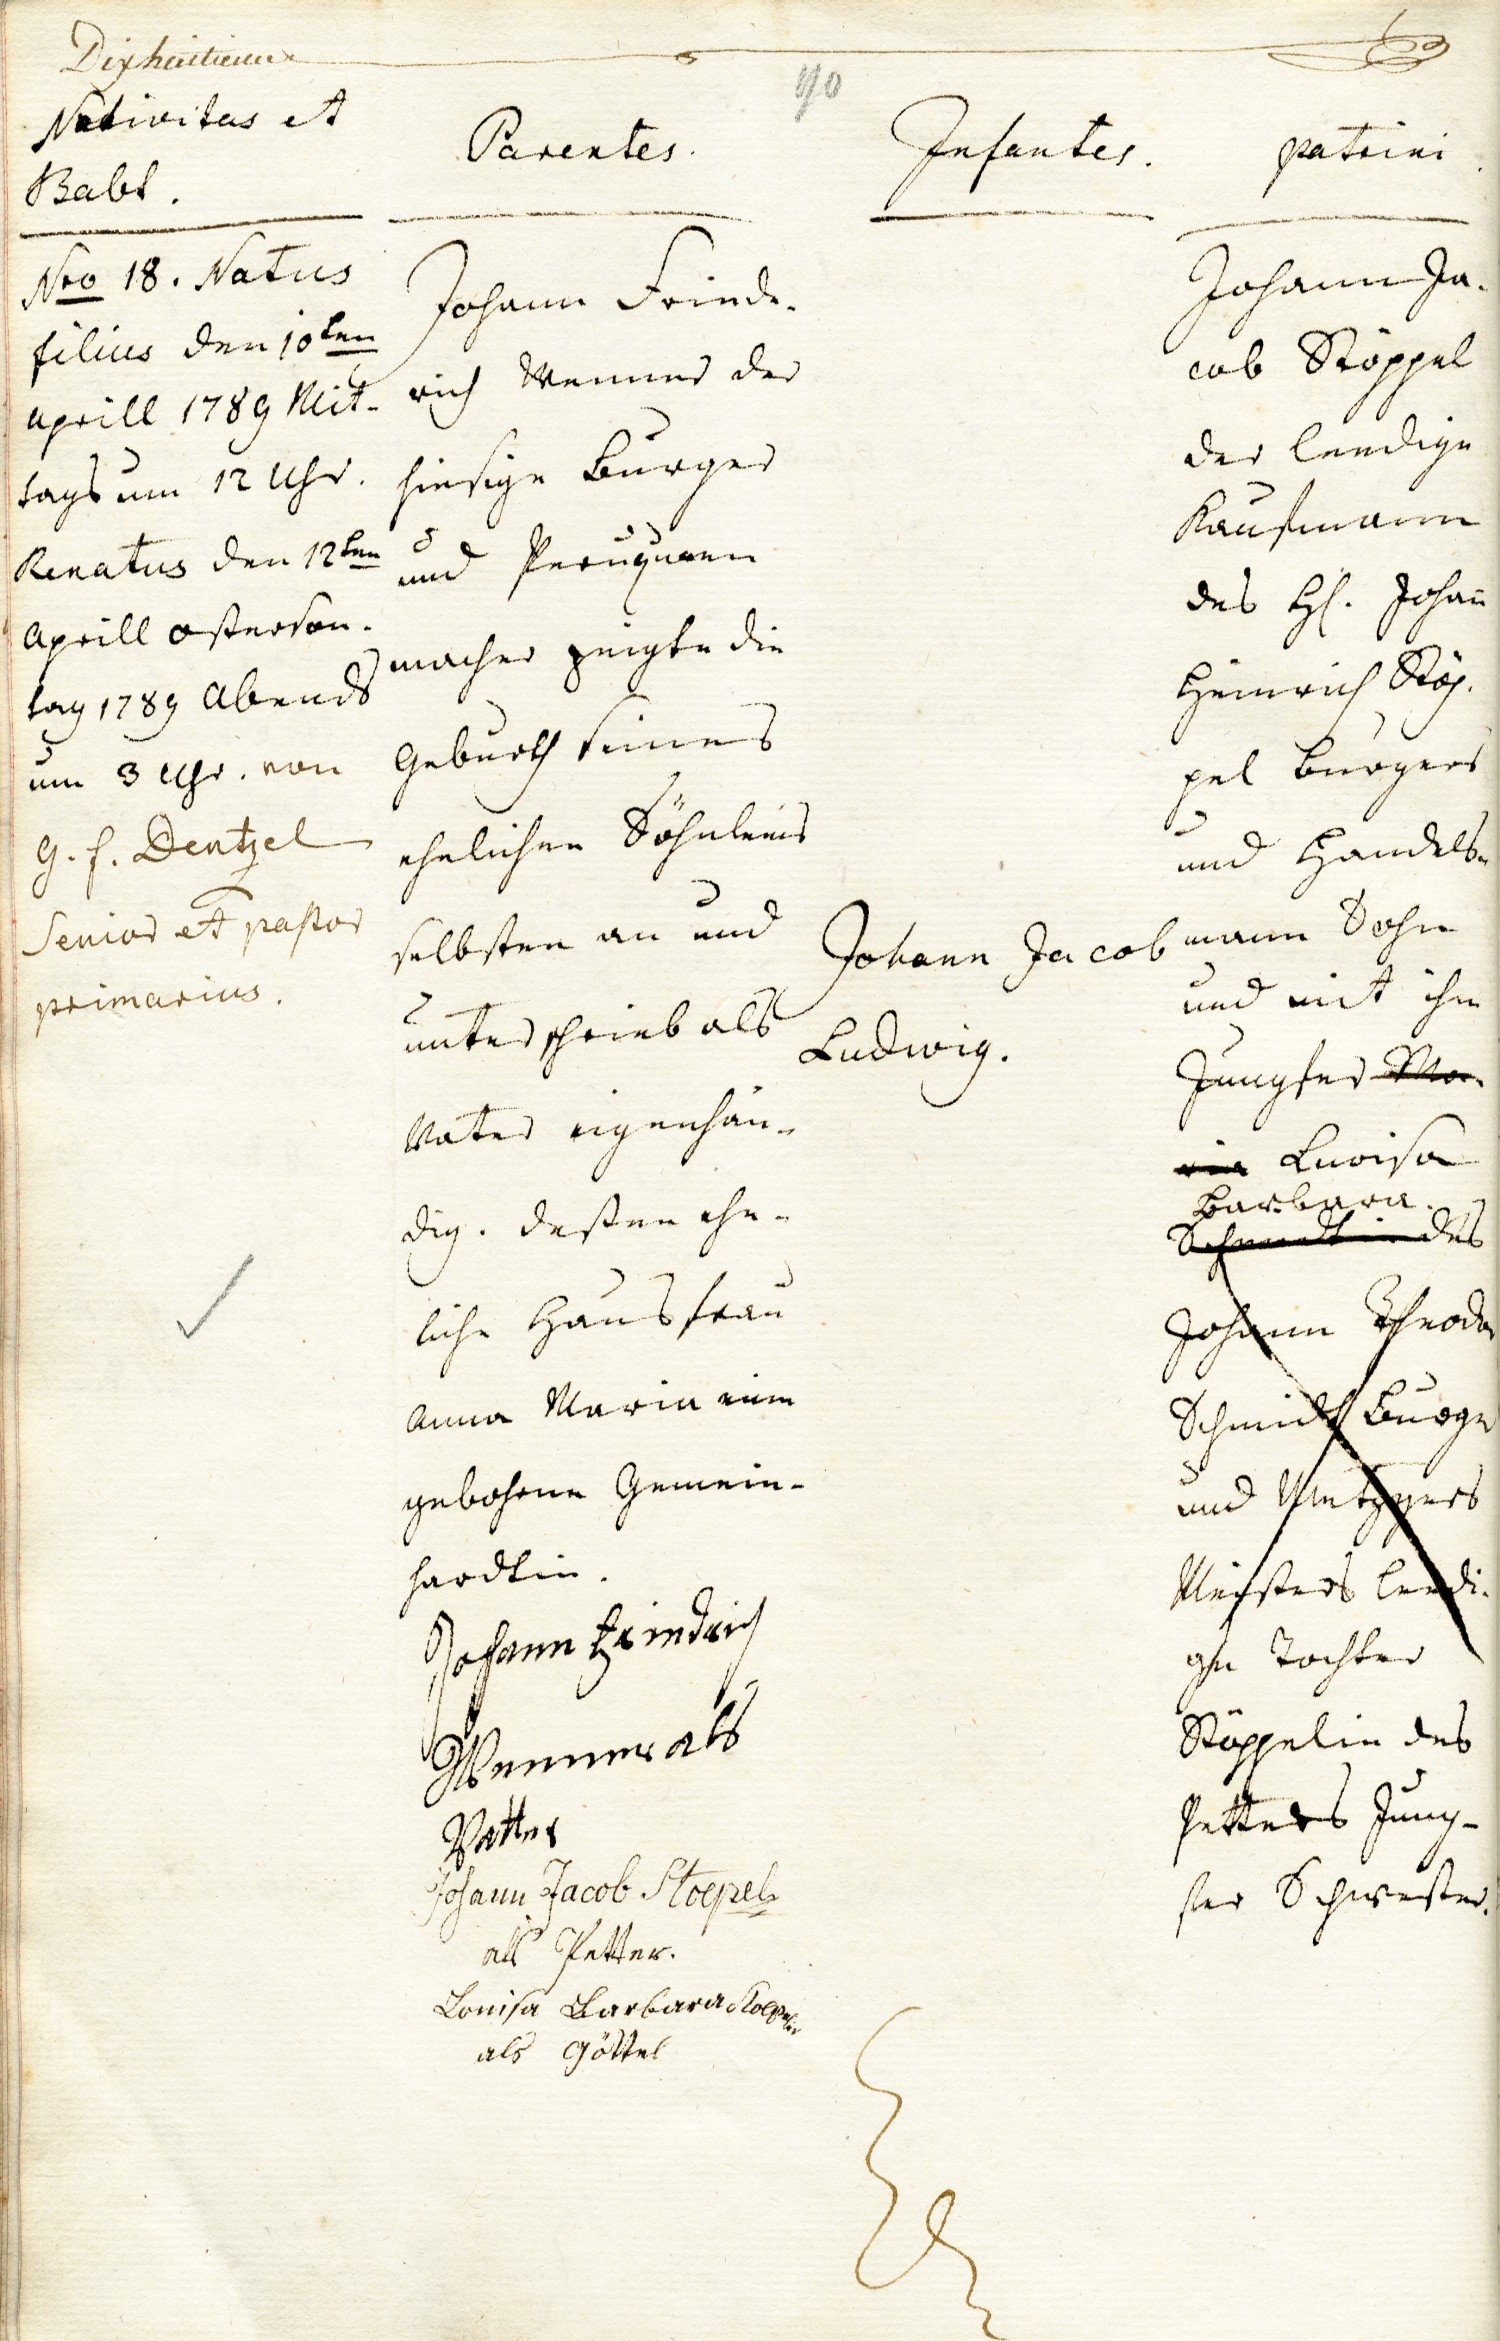 90
Nativitas et
Babt.
Nro 18. Natus
filius den 10ten
Aprill 1789 Mit-
tags um 12 Uhr.
Renatus den 12ten
Aprill osterson-
tag 1789 Abends
um 3 Uhr. von
G. f. Dentzel
Senior et pastor
primarius.
Parentes.
Johann Friede-
rich Wenner der
hiesige Burger
und Peruquen
macher zeigte die
Geburth seines
ehelichen Söhnleins
selbsten an und
unterschrieb als
Vater eigenhän-
dig. dessen ehe-
liche Hausfrau
Anna Maria eine
gebohrne Gemein-
hardtin.
Johann Friedrich
Wenner als
Vatter
Johann Jacob Stoepel
als Petter.
Louisa Barbara Stoepelin
als Göttel
Infantes.
Johann Jacob
Ludwig.
patrini
Johann Ja-
cob Stöppel
der leedige
Kaufmann
des H. Johan
Heinrich Stöp-
pel Burgers
und Handels-
mann Sohn
und mit ihm
Jungfer Ma-
ria Luoisa
Barbara.
Schmidtin des
Johann Theodor
Schmidt Burger
und Metzgers
Meisters leedi-
ge Tochter
Stöppelin des
Petters Jung-
ster Schwester.